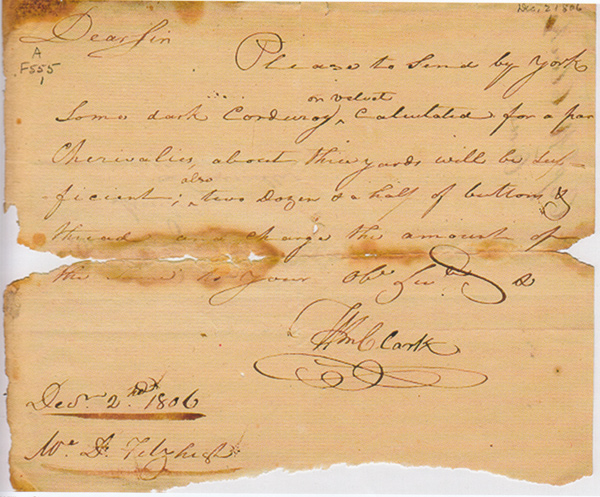 Dec. 2 1806
Dear Sir
A
F555
1
Please to Send by York
Some dark Corduroy ^ or velvet Calculated for a par
Cherivalies, about three yards will be Suf-
ficient; ^ also two Dozen & a half of buttons &
thread and charge the amount of
the to your Obt. Sevt. &
Wm Clark
Decr. 2nd 1806
Mr. D. Fitzhugh